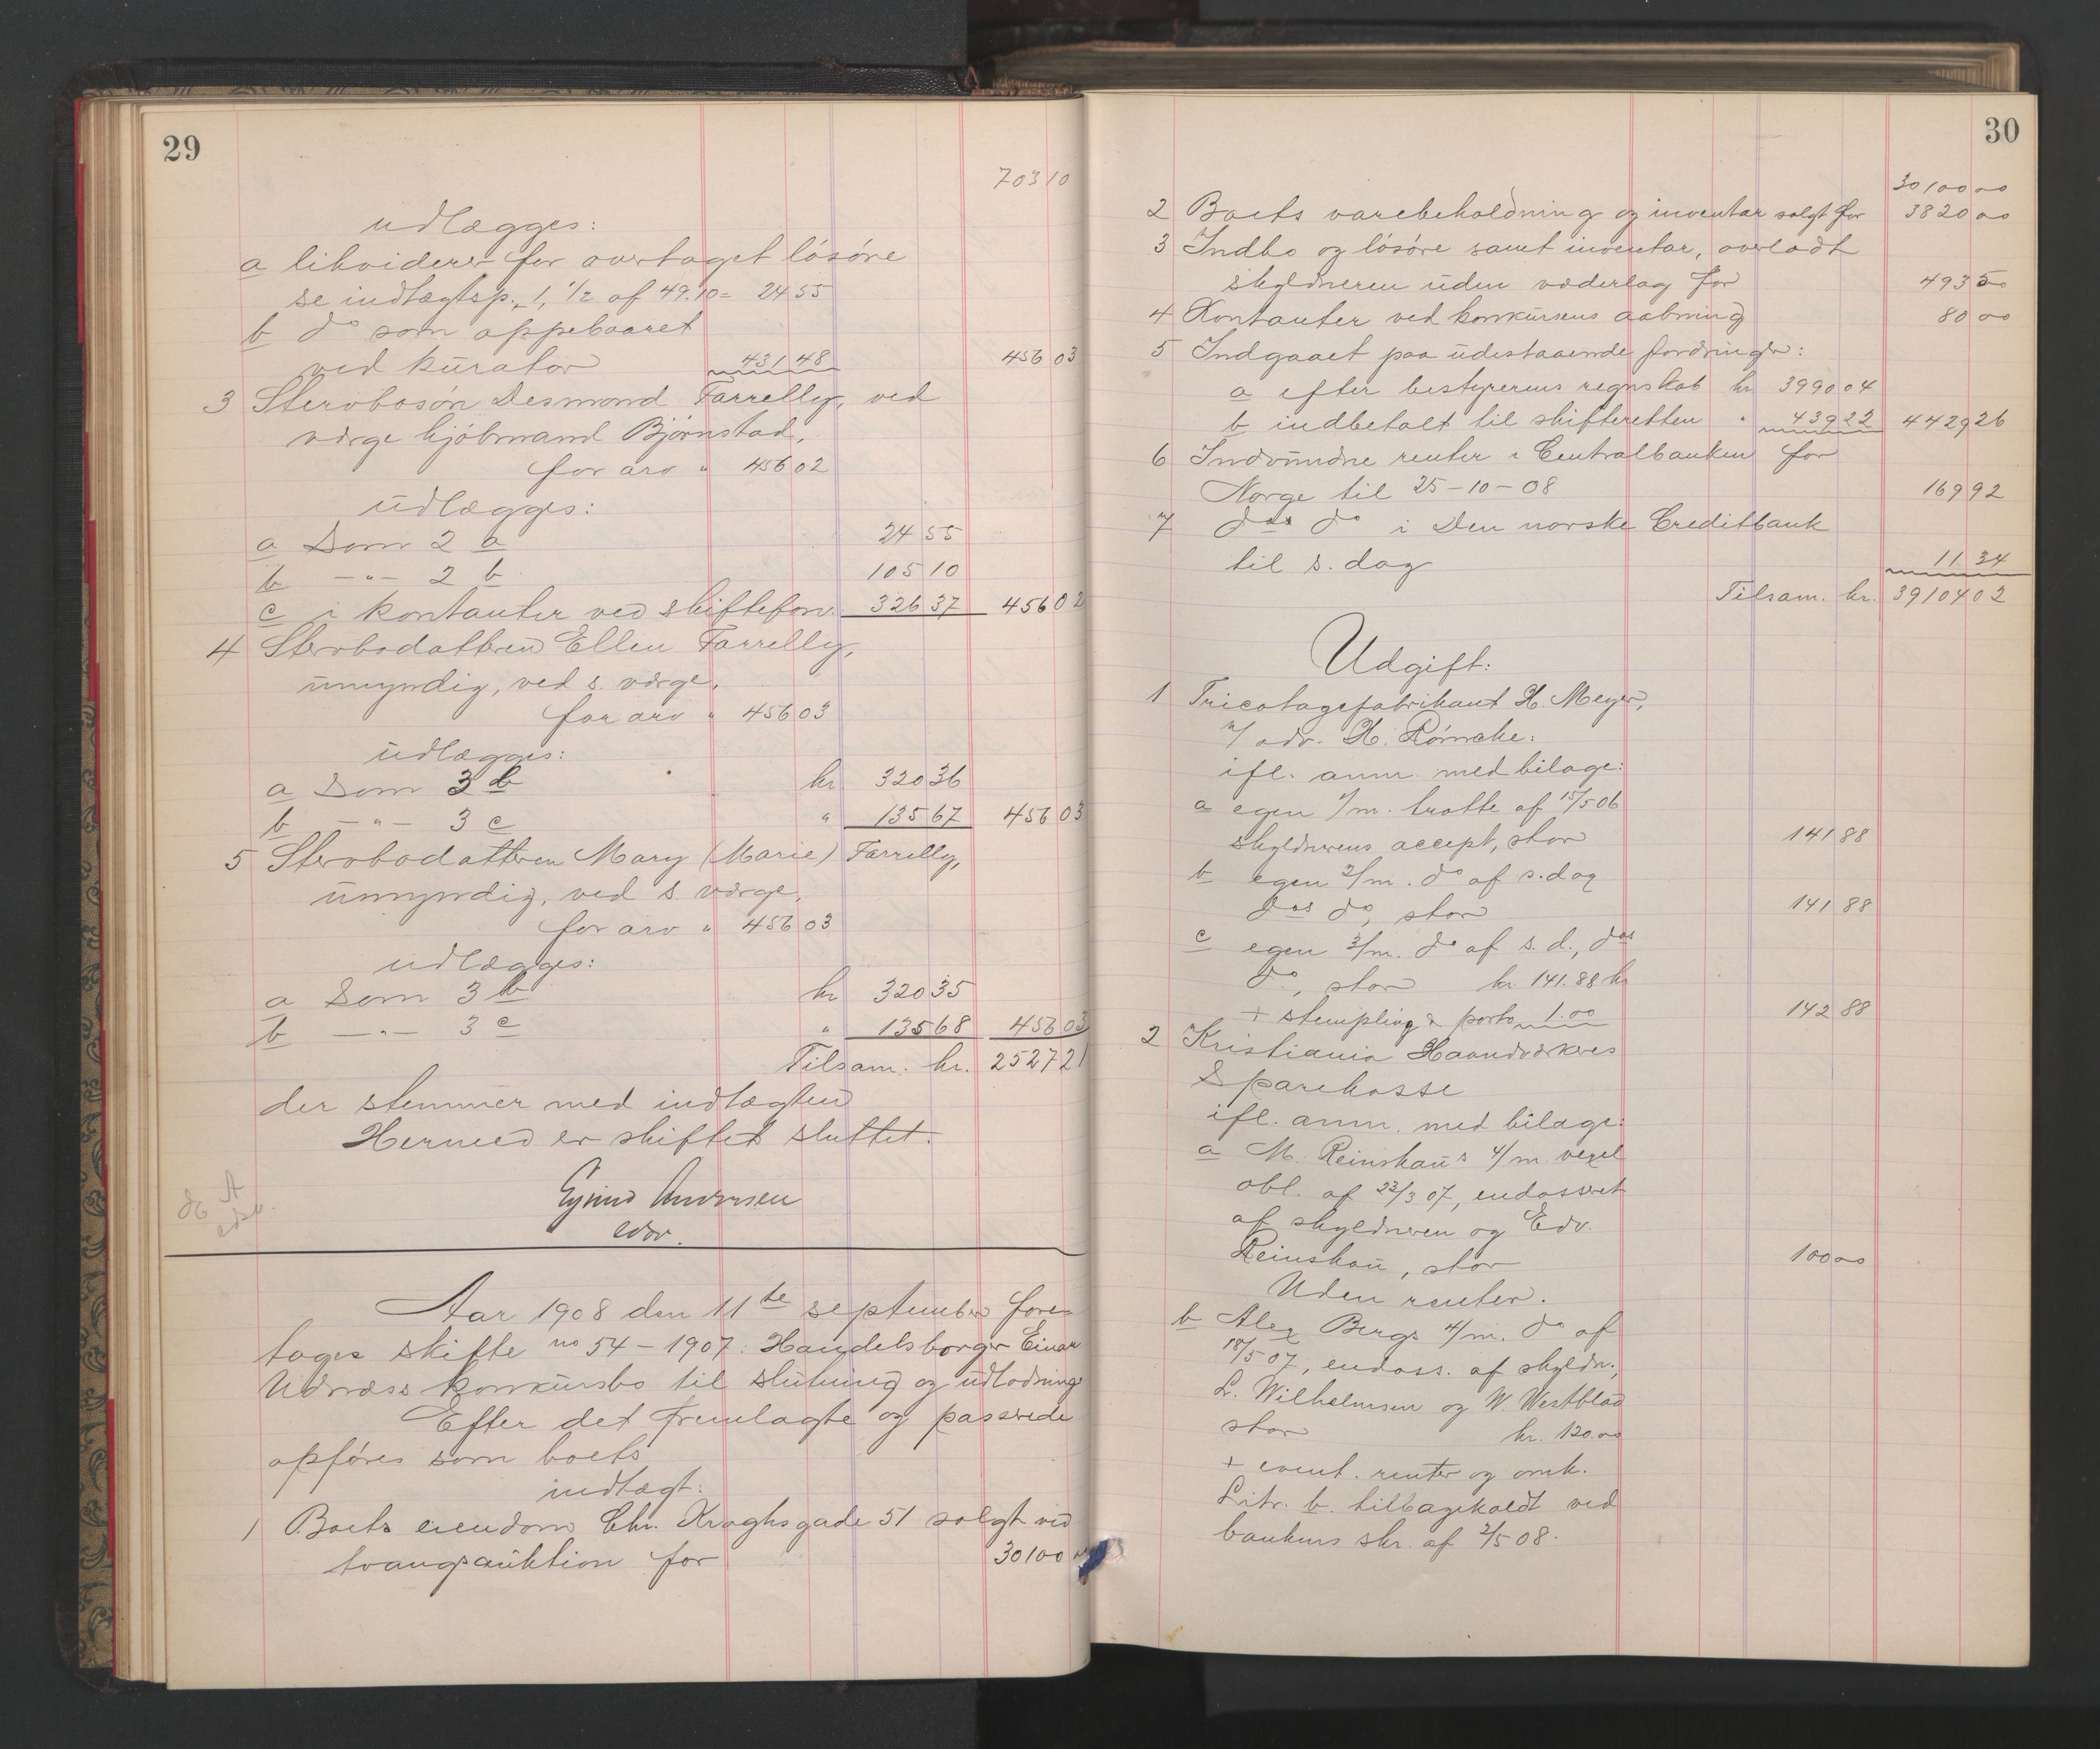 29
703 10
udlægges:
a likviderer for overtaget løsøre
se indtægtsp. 1, 1/2 af 49.10 = 24 55
b do som oppebaaret
ved kurator 431 48 456 03
3 Stervbosøn Desmond Farrelly, ved
værge kjøbmand Bjørnstad,
for arv " 456 02
udlægges:
a Som 2 a 24 55
b -"- 2 b 105 10
c i kontanter ved skifteforv. 326 37 456 02
4 Stervbodatteren Ellen Farrelly,
umyndig, ved s. værge,
for arv " 456 03
udlægges:
a Som 3 b kr 320 36
b -"- 3 c " 135 67 456 03
5 Stervbodatteren Mary (Marie) Farrelly,
umyndig, ved s. værge,
for arv " 456 03
udlægges:
a Som 3 b kr 320 35
b -"- 3 c " 135 68 456 03
Tilsam. kr. 2527 21
der stemmer med indtægten
Hermed er skiftet sluttet.
Eyvind Andersen
edsv.
Aar 1908 den 11te september fore-
toges skifte no 54 - 1907: Handelsborger Einar
Udnæss konkursbo til slutning og udlodning
Efter det fremlagte og passerede
opføres som boets
indtægt:
1 Boets eiendom Chr. Kroghsgade 51 solgt ved
tvangsauktion for 30100 00
30
30100 00
2 Boets varebeholdning og inventar solgt for 3820 00
3 Indbo og løsøre samt inventar, overladt
skyldneren uden vederlag for 493 50
4 Kontanter ved konkursens aabning 80 00
5 Indgaaet paa udestaaende fordringer:
a efter bestyrerens regnskab kr 3990 04
b indbetalt til skifteretten " 439 22 4429 26
6 Indvundne renter i Centralbanken for
Norge til 25-10-08 169 92
7 dos do i Den norske Creditbank
til s. dag 11 34
Tilsam. kr. 39104 02
Udgift:
1 Tricotagefabrikant H. Meyer,
v/ adv. H. Rømcke:
ifl. anm. med bilage:
a egen 1/m. tratte af 15/5 06
skyldnerens accept, stor 141 88
b egen 2/m. do af s. dag
dos do, stor 141 88
c egen 3/m. do af s. d., dos
do, stor kr 141.88 kr
+ stempling & porto 1.00 142 88
2 Kristiania Haandværkeres
Sparekasse
ifl. anm. med bilage:
a M. Reinskau's 4/m. vexel
obl. af 23/3 07, endosseret
af skyldneren og Edv.
Reinskau, stor 100 00
Uden renter.
b Alex Bergs 4/m. do af
18/5 07, endoss. af skyldn.,
L. Wilhelmsen og W. Westblad
stor kr. 120.00
+ event. renter og omk.
Litr. b. tilbagekaldt ved
bankens skr. af 2/5 08.